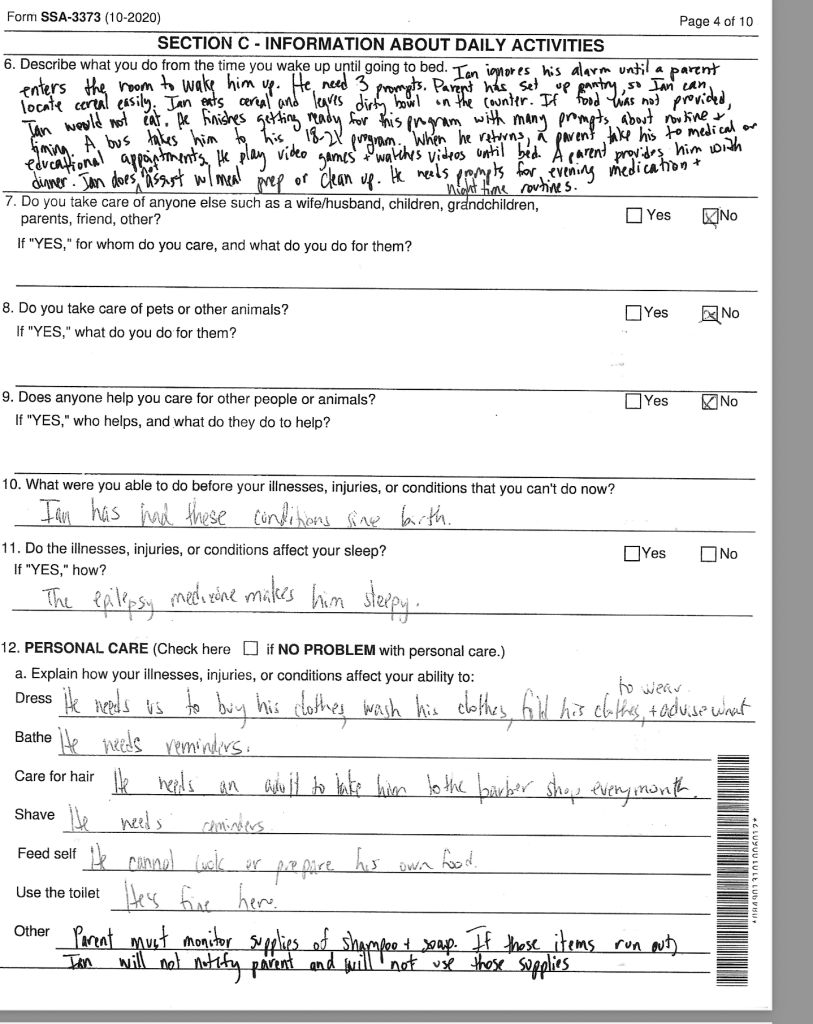 Form SSA-3373 (10-2020)
Page 4 of 10
SECTION C - INFORMATION ABOUT DAILY ACTIVITIES
6. Describe what you do from the time you wake up until going to bed. Ian ignores his alarm until a parent
enters the room to wake him up. He need 3 prompts. Parent has set up pantry, so Ian can
locate cereal easily. Ian eats cereal and leaves dirty bowl on the counter. If food was not provided,
Ian would not eat. He finishes getting ready for this program with many prompts about routine +
timing. A bus takes him to his 18-21 program. When he returns, a parent take his to medical or
educational appointments. He play video games + watches videos until bed. A parent provides him with
dinner. Ian does not assist w/ meal prep or clean up. He needs prompts for evening medication +
night time routines.
7. Do you take care of anyone else such as a wife/husband, children, grandchildren,
parents, friend, other?
Yes
No
If "YES," for whom do you care, and what do you do for them?
8. Do you take care of pets or other animals?
Yes
No
If "YES," what do you do for them?
9. Does anyone help you care for other people or animals?
Yes
No
If "YES," who helps, and what do they do to help?
10. What were you able to do before your illnesses, injuries, or conditions that you can't do now?
Ian has had these conditions sine birth.
11. Do the illnesses, injuries, or conditions affect your sleep?
Yes
No
If "YES," how?
The epilepsy medicine makes him sleepy.
12. PERSONAL CARE (Check here if NO PROBLEM with personal care.)
a. Explain how your illnesses, injuries, or conditions affect your ability to:
to wear
Dress He needs us to buy his clothes, wash his clothes, fold his clothes, + advise what
Bathe He needs reminders.
Care for hair He needs an adult to take him to the barber shop every month.
Shave He needs reminders
Feed self He cannot cook or prepare his own food.
Use the toilet He's fine here.
Other Parent must monitor supplies of shampoo + soap. If those items run out,
Ian will not notify parent and will not use those supplies